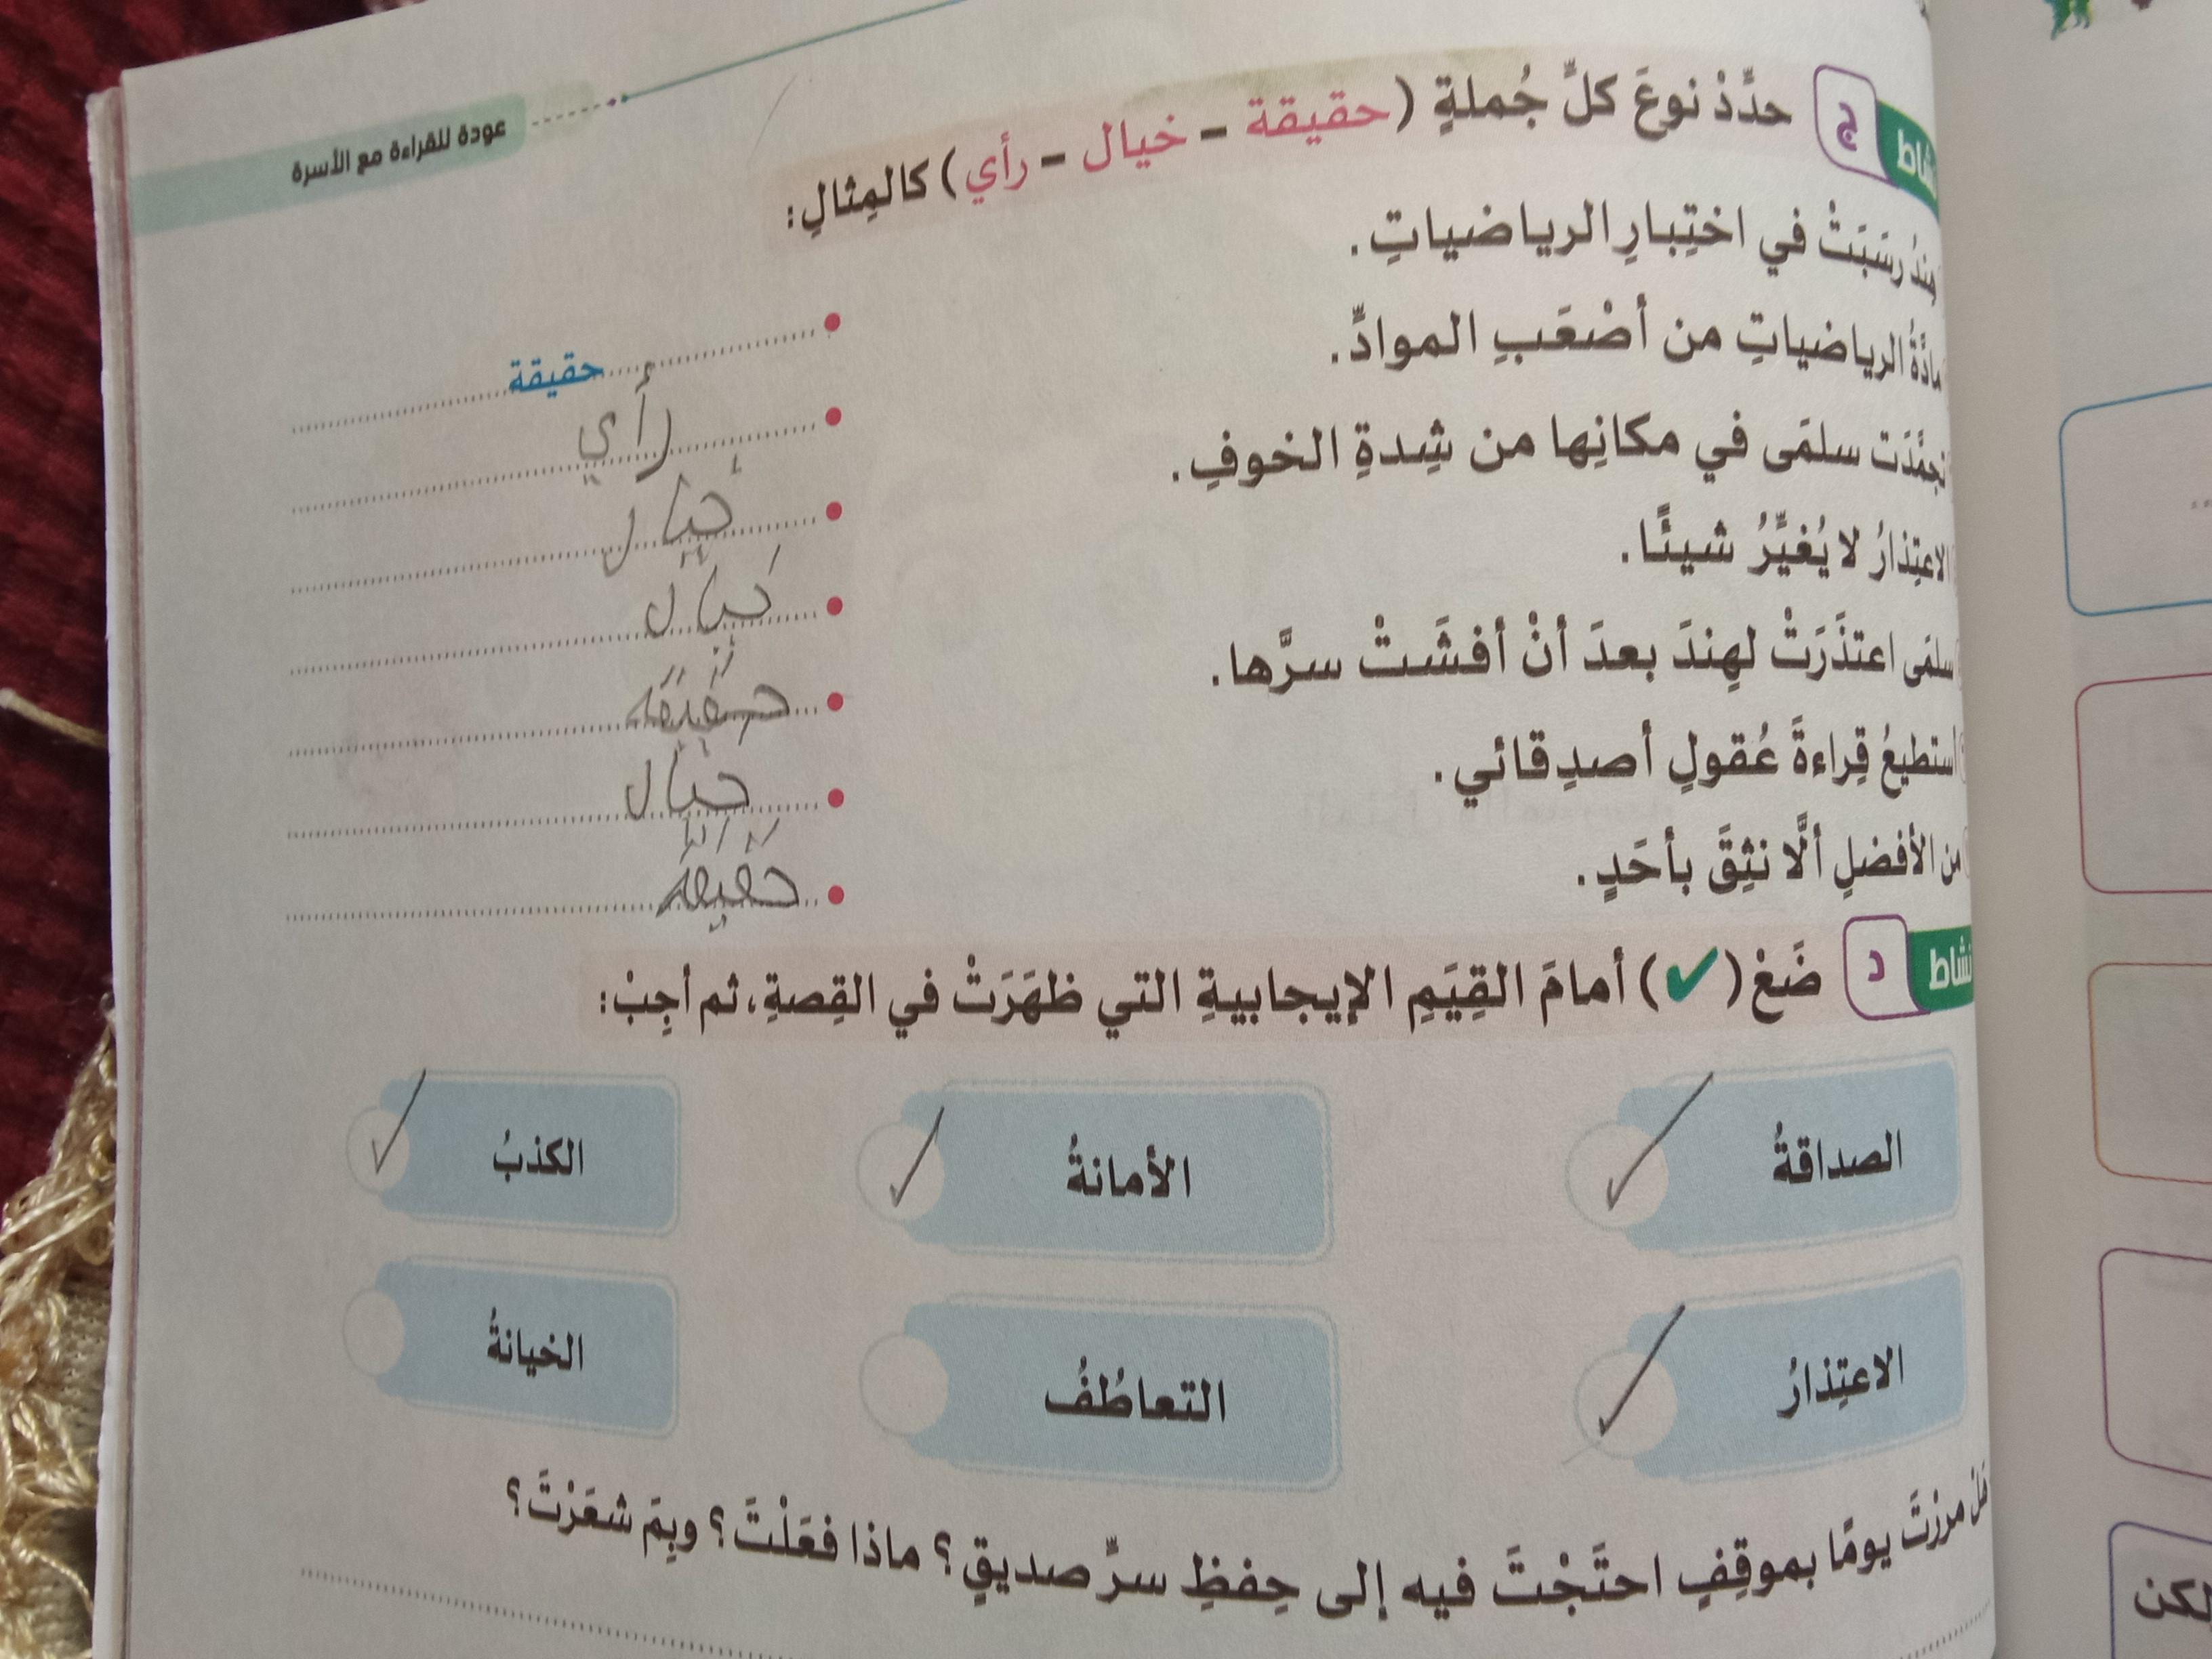 عودة للقراءة مع الأسرة
نشاط ج حدِّدْ نوعَ كلِّ جُملةٍ (حقيقة - خيال - رأي) كالمِثالِ:
هِندُ رسَبَتْ في اختِبارِ الرياضياتِ.
حقيقة
مادَّةُ الرياضياتِ من أصْعَبِ الموادِّ.
رأي
تجمَّدَت سلمَى في مكانِها من شِدةِ الخوفِ.
خيال
الاعتِذارُ لا يُغيِّرُ شيئًا.
خيال
سلمَى اعتذَرَتْ لهِندَ بعدَ أنْ أفشَتْ سرَّها.
حقيقه
أستطيعُ قِراءةَ عُقولِ أصدِقائي.
خيال
من الأفضلِ ألَّا نثِقَ بأحَدٍ.
حقيقة
نشاط د ضَعْ (✓) أمامَ القِيَمِ الإيجابيةِ التي ظهَرَتْ في القِصةِ، ثم أجِبْ:
الصداقةُ ✓ الأمانةُ ✓ الكذبُ ✓
الاعتِذارُ ✓ التعاطُفُ الخيانةُ
هَلْ مررْتَ يومًا بموقِفٍ احتَجْتَ فيه إلى حِفظِ سرِّ صديقٍ؟ ماذا فعَلْتَ؟ وبِمَ شعَرْتَ؟